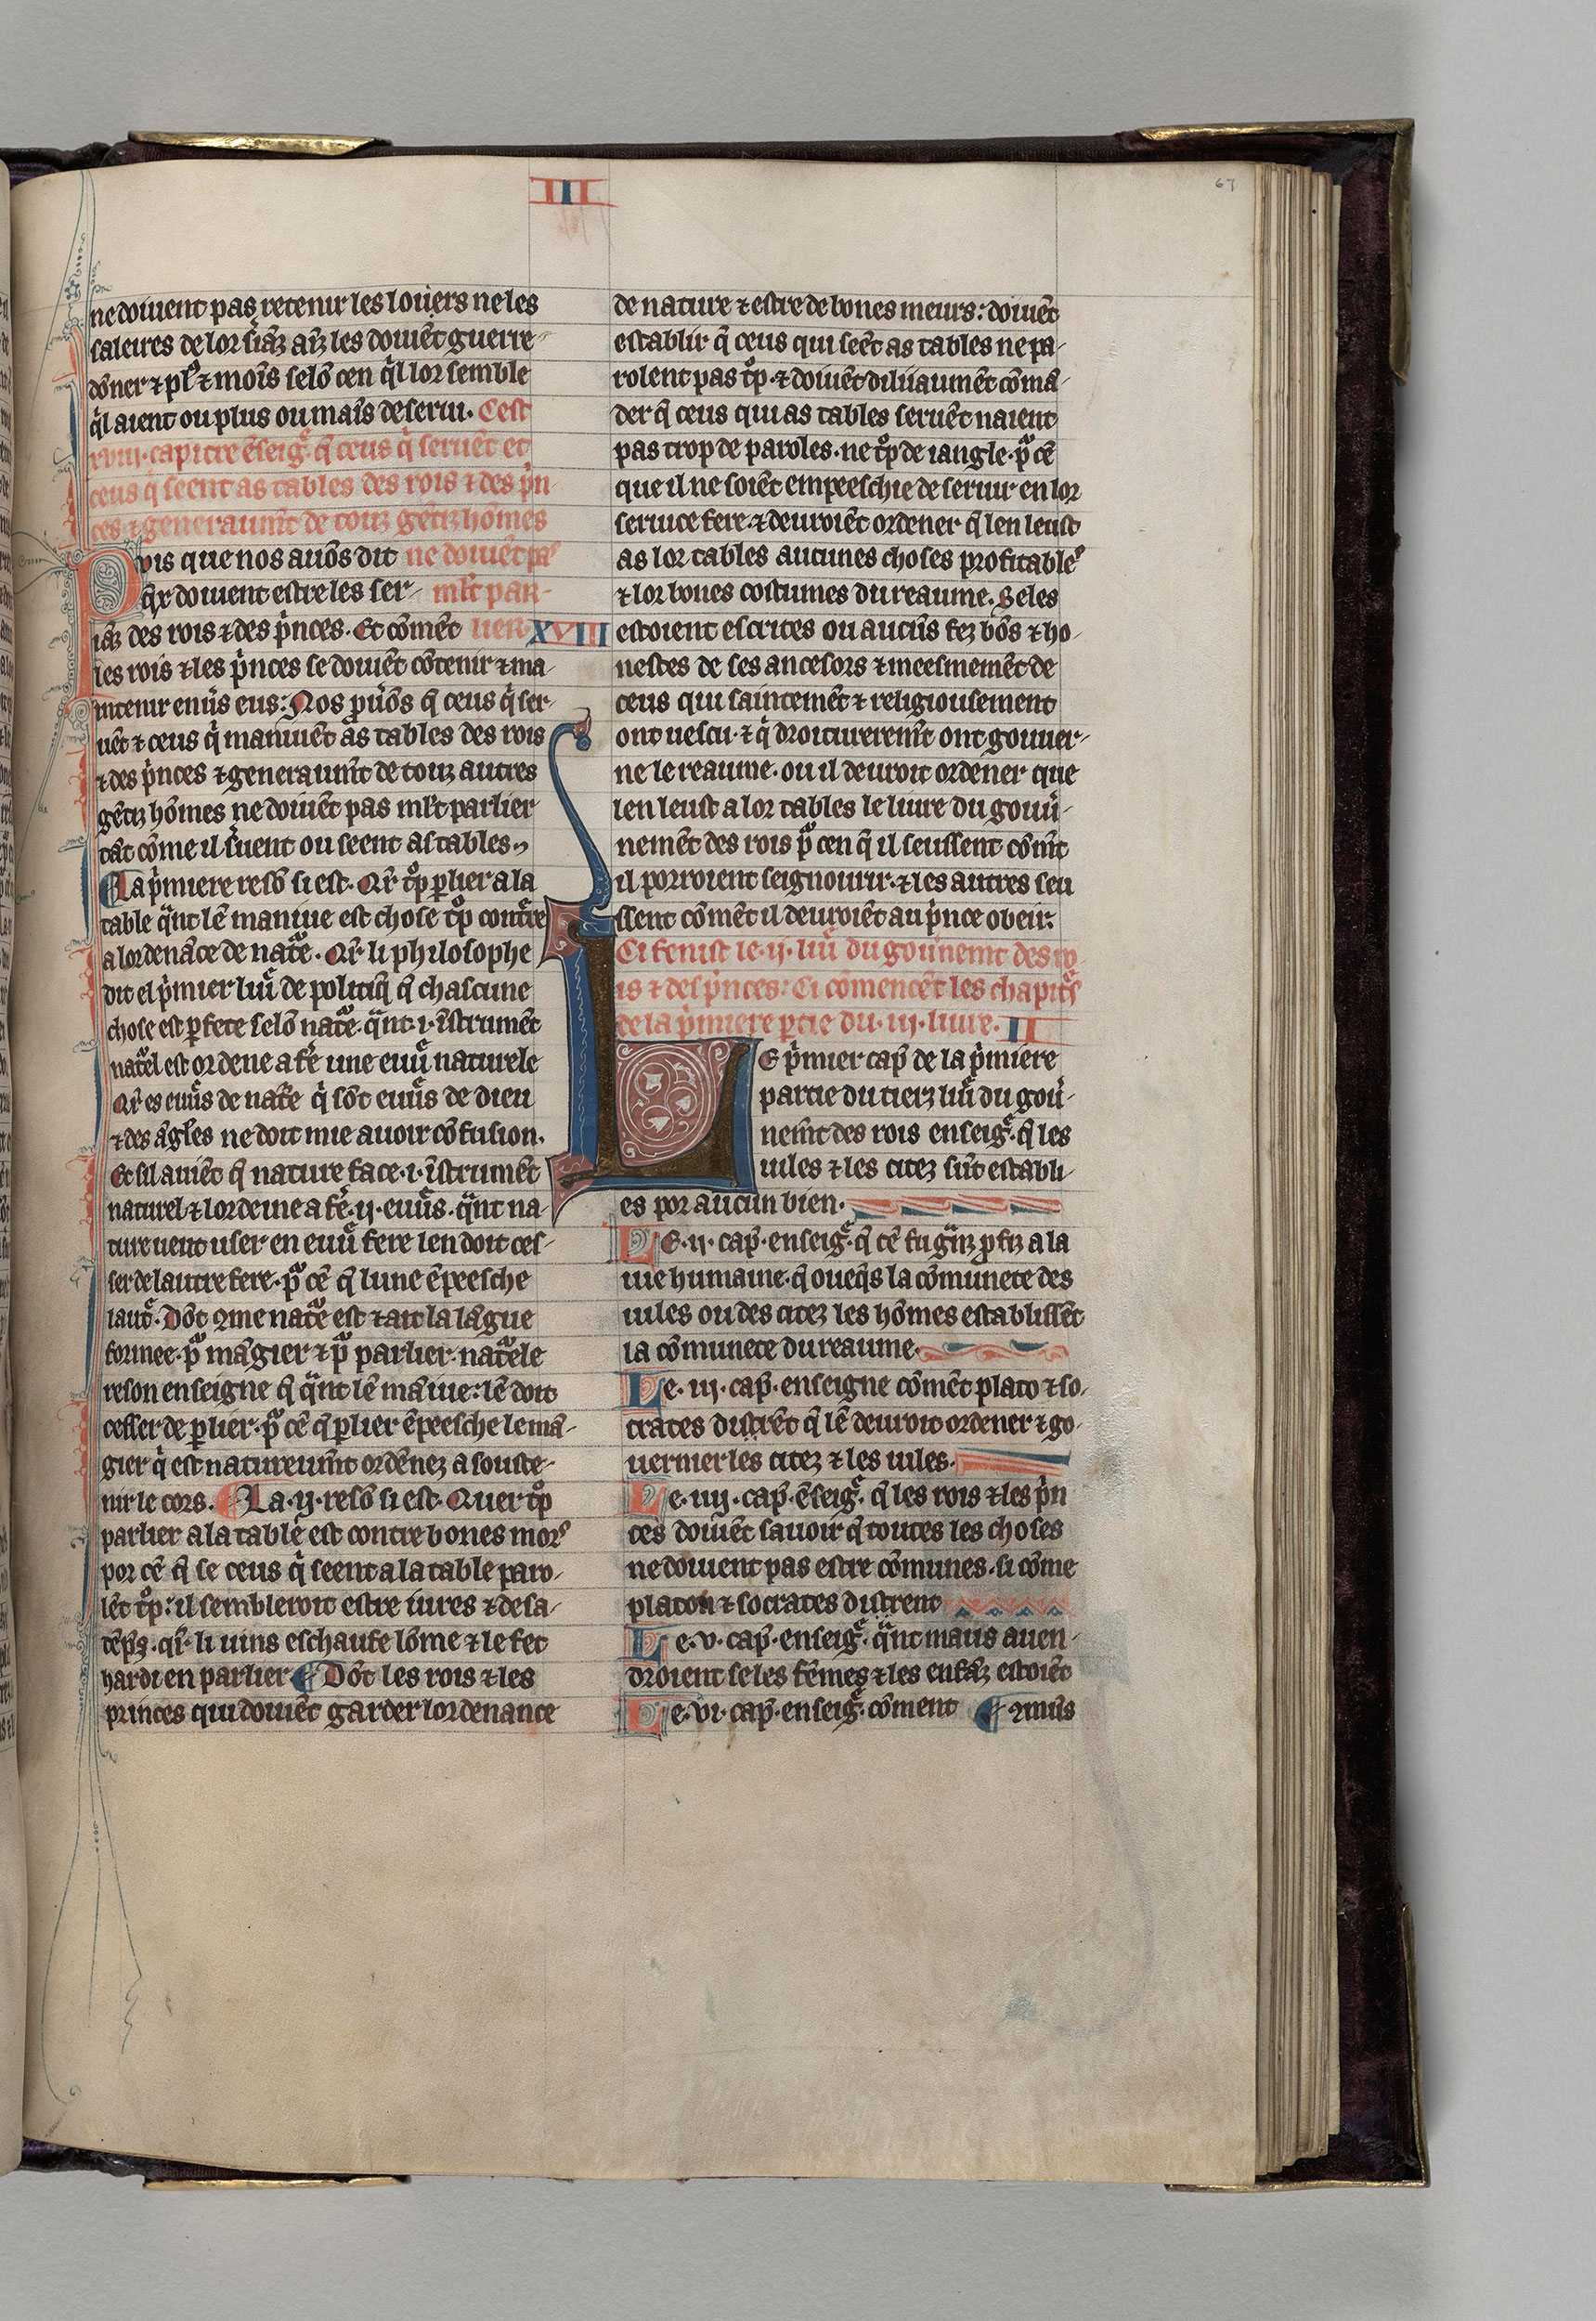 III
67
ne doiuent pas retenir les loüers ne les
saleires de lor s̾iãz aĩz les doiuẽt guerre-
dõner ⁊ plꝰ ⁊ moĩs selõ cen q̾l lor semble
q̾l aient ou plus ou maĩs deserui. Cest
xviii. capitre ẽseig̾. q̃ ceus q̾ seruẽt et
ceus q̾ seent as tables des rois ⁊ des p̾n
ces ⁊ generaum̃t de touz gẽtiz hõmes
Puis que nos auõs dit ne doiuẽt pas
q̃x doiuent estre les ser- ml̃t par-
iãz des rois ⁊ des p̾nces. Et cõmẽt lier. XVIII
les rois ⁊ les p̾nces se doiuẽt cõtenir ⁊ ma-
intenir enũs eus: Nos ꝓuõs q̃ ceus q̾ ser-
uẽt ⁊ ceus q̾ maniuẽt as tables des rois
⁊ des p̾nces ⁊ generaum̃t de touz autres
gẽtiz hõmes ne doiuẽt pas ml̃t parlier
tãt cõme il s̾uent ou seent as tables.
¶ La p̾miere resõ si est. Qr̃ tͦp ꝑlier a la
table q̃nt lẽ maniue est chose tͦp contᷓre
a lordenãce de natᷓe. Qr̃ li philosophe
dit el p̾mier liũ de politiq̃ q̃ chascune
chose est ꝑfete selõ natᷓe. q̃nt .i. ĩstrumẽt
natᷓel est ordene a fẽ une euũ naturele
Qr̃ es euũs de natᷓe q̾ sõt euũs de dieu
⁊ des ãgles ne doit mie auoir cõfusion.
Et sil auiẽt q̃ nature face .i. ĩstrumẽt
naturel ⁊ lordeine a fẽ .ii. euũs. q̃nt na-
ture uent user en euũ fere len doit ces-
ser de lautre fere. pᷓ cẽ q̃ lune ẽpeesche
lautᷓ. Dõt ꝯme natᷓe est ⁊ ait la lãgue
formee. pᷓ mãgier ⁊ pᷓ parlier. natᷓele
reson enseigne q̃ q̃nt lẽ mãiue: lẽ doit
cesser de ꝑlier. pᷓ cẽ q̃ ꝑlier ẽpeesche le mã-
gier q̾ est natureum̃t ordẽnez a souste-
nir le cors. ¶ La .ii. resõ si est. Quer tͦp
parlier a la table est contre bones morˢ
por cẽ q̃ se ceus q̾ seent a la table paro-
lẽt tͦp: il sembleroit estre iures ⁊ desa-
tẽpz. qr̃. li uins eschaufe lõme ⁊ le fet
hardi en parlier ¶ Dõt les rois ⁊ les
princes qui doiuẽt garder lordenance
de nature ⁊ estre de bones meurs: doiuẽt
establir q̃ ceus qui seẽt as tables ne pa-
rolent pas tͦp. ⁊ doiuẽt diluaumẽt cõmã-
der q̃ ceus qui as tables seruẽt naient
pas trop de paroles. ne tͦp de iangle. pᷓ cẽ
que il ne soiẽt empeeschie de seruir en lor
seruice fere. ⁊ deuroiẽt ordener q̃ len leust
as lor tables aucunes choses profitableˢ
⁊ lor bones costumes du reaume. Se eles
estoient escrites ou aucũs fez bõs ⁊ ho-
nestes de ses ancesors ⁊ meesmemẽt de
ceus qui saintemẽt ⁊ religiousement
ont uescu. ⁊ q̾ droitureremt̃ ont gouuer-
ne le reaume. ou il deuroit ordener que
len leust a lor tables le liure du gouũ-
nemẽt des rois pᷓ cen q̃ il seussent cõmt̃
il porroient seignourir. ⁊ les autres seu
ssent cõmẽt il deuroiẽt au p̾nce obeir.
Ci fenist le .ii. liũ du gouũnemt̃ des ro-
is ⁊ des p̾nces: Ci cõmencẽt les chapitᷓs
de la p̾miere ꝑtie du .iii. liure. II
Le p̾mier cap̃ de la p̾miere
partie du tierz liũ du goũ-
nemt̃ des rois enseig̾. q̃ les
uiles ⁊ les citez sũt establi-
es por aucun bien.
Le .ii. cap̃. enseig̾. q̃ cẽ fu g̃nz ꝓfiz a la
uie humaine. q̃ oueq̃s la cõmunete des
uiles ou des citez les hõmes establissẽt
la cõmunete du reaume.
Le .iii. cap̃. enseigne cõmẽt plato ⁊ so-
crates distrẽt q̃ lẽ deuroit ordener ⁊ go-
uernier les citez ⁊ les uiles.
Le .iiii. cap̃. ẽseig̾. q̃ les rois ⁊ les p̾n
ces doiuẽt sauoir q̃ toutes les choses
ne doiuent pas estre cõmunes. si cõme
platon ⁊ socrates distrent
Le .v. cap̃. enseig̾. q̃nt maus auen-
droient se les fẽmes ⁊ les enfãz estoiẽt
Le .vi. cap̃. enseig̾. cõment ¶ ꝯmũs